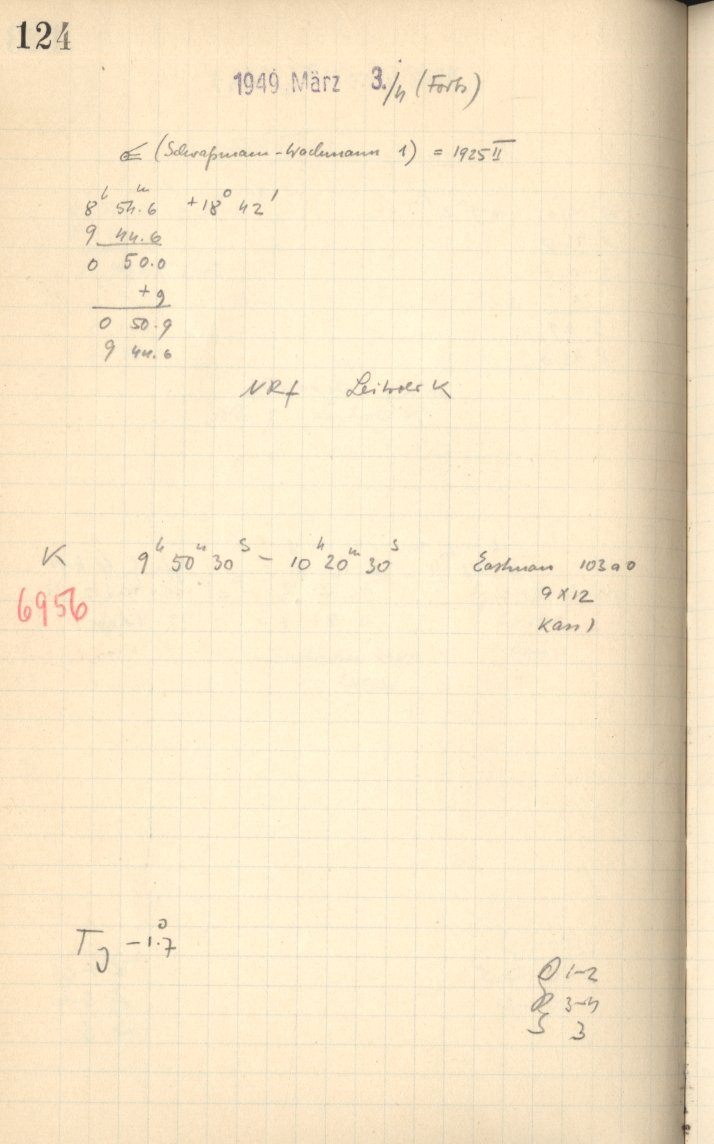 124
1949 März 3./4 (Forts)
☄ (Schwaßmann-Wachmann 1) = 1925 II
8ʰ 54ᵐ.6 +18° 42'
9 44.6
0 50.0
+9
0 50.9
9 44.6
NRf Leitrohr K
K 9ʰ 50ᵐ 30ˢ – 10ʰ 20ᵐ 30ˢ Eastman 103a0
6956 9x12
Kass 1
T – 1.°7
1-2
3-4
S 3